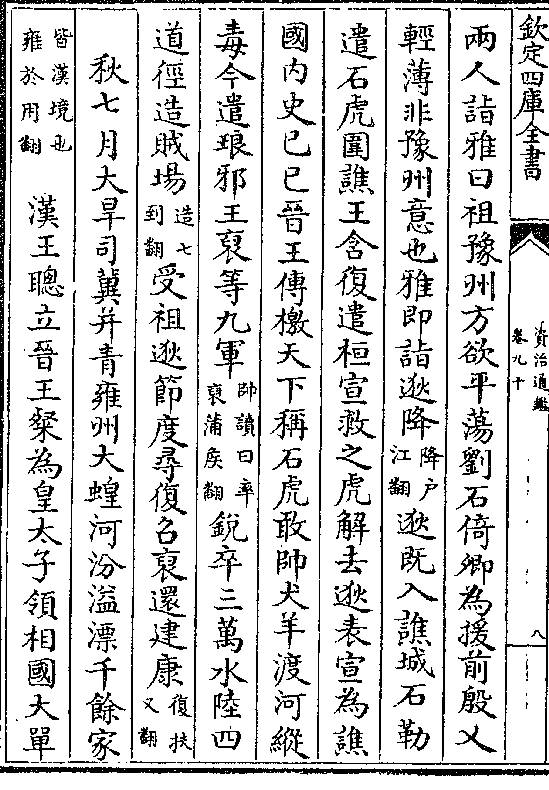 欽定四庫全書
資治通鑑
卷九十
八
兩人詣雅曰祖豫州方欲平蕩劉石倚卿為援前殷乂
輕薄非豫州意也雅即詣逖降降户江翻逖既入譙城石勒
遣石虎圍譙王含復遣桓宣救之虎解去逖表宣為譙
國内史已已晉王傳檄天下稱石虎敢帥犬羊渡河縱
毒今遣琅邪王裒等九軍帥讀曰率裒蒲矦翻銳卒三萬水陸四
道徑造賊場造七到翻受祖逖節度尋復召裒還建康復扶又翻
秋七月大旱司冀并青雍州大蝗河汾溢漂千餘家
皆漢境也雍於用翻 漢王聰立晉王粲為皇太子領相國大單